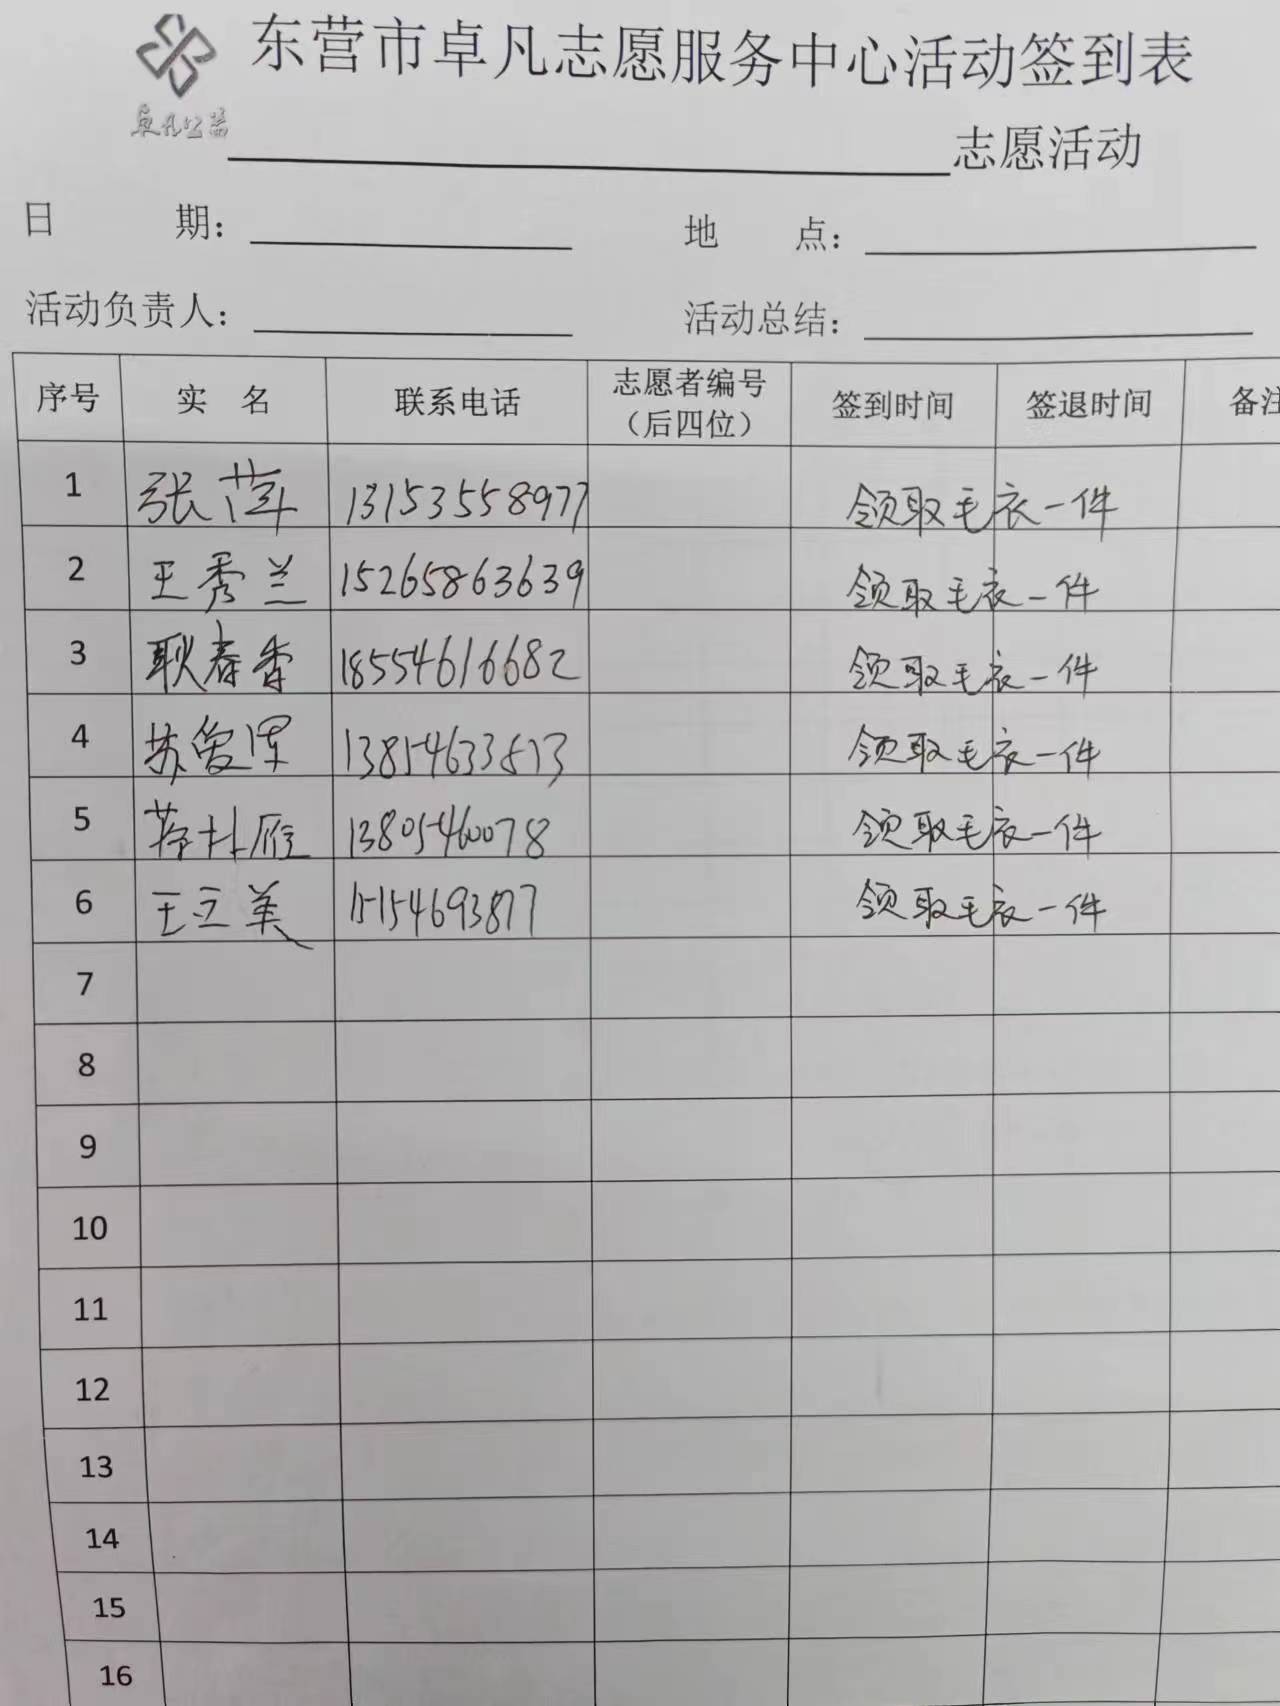 东营市卓凡志愿服务中心活动签到表
卓凡公益
志愿活动
日 期： 地 点：
活动负责人： 活动总结：
序号 实 名 联系电话 志愿者编号（后四位） 签到时间 签退时间 备注
1 张萍 13153558977 领取毛衣一件
2 王秀兰 15265863639 领取毛衣一件
3 耿春香 18554616682 领取毛衣一件
4 苏 13854633513 领取毛衣一件
5 13805460078 领取毛衣一件
6 王立美 15154693877 领取毛衣一件
7
8
9
10
11
12
13
14
15
16